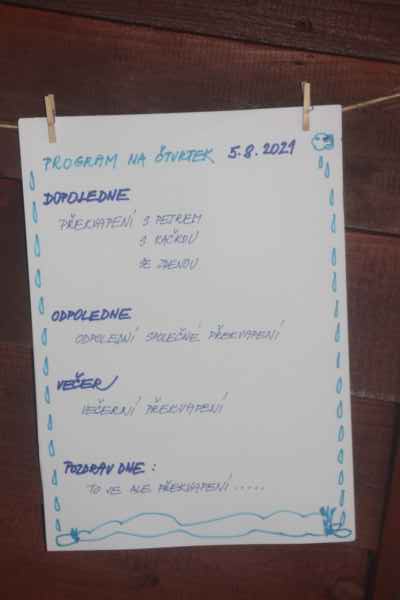 PROGRAM NA ČTVRTEK 5.8.2021
DOPOLEDNE
PŘEKVAPENÍ S PETREM
S KAČKOU
SE ZDENOU
ODPOLEDNE
ODPOLEDNÍ SPOLEČNÉ PŘEKVAPENÍ
VEČER
VEČERNÍ PŘEKVAPENÍ
POZDRAV DNE:
TO JE ALE PŘEKVAPENÍ.....